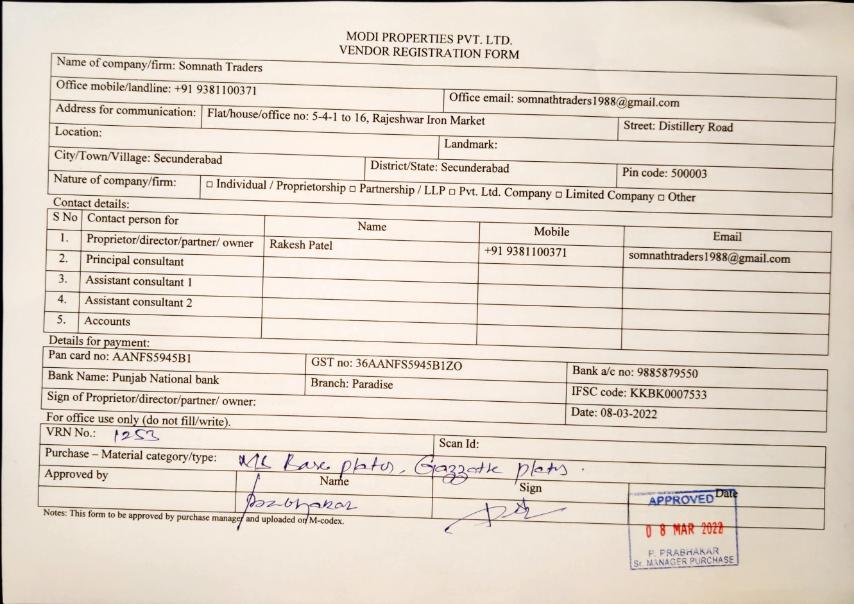 MODI PROPERTIES PVT. LTD.
VENDOR REGISTRATION FORM
Name of company/firm: Somnath Traders
Office mobile/landline: +91 9381100371 Office email: somnathtraders1988@gmail.com
Address for communication: Flat/house/office no: 5-4-1 to 16, Rajeshwar Iron Market Street: Distillery Road
Location: Landmark:
City/Town/Village: Secunderabad District/State: Secunderabad Pin code: 500003
Nature of company/firm: □ Individual / Proprietorship □ Partnership / LLP □ Pvt. Ltd. Company □ Limited Company □ Other
Contact details:
S No Contact person for Name Mobile Email
1. Proprietor/director/partner/ owner Rakesh Patel +91 9381100371 somnathtraders1988@gmail.com
2. Principal consultant
3. Assistant consultant 1
4. Assistant consultant 2
5. Accounts
Details for payment:
Pan card no: AANFS5945B1 GST no: 36AANFS5945B1ZO Bank a/c no: 9885879550
Bank Name: Punjab National bank Branch: Paradise IFSC code: KKBK0007533
Sign of Proprietor/director/partner/ owner: Date: 08-03-2022
For office use only (do not fill/write).
VRN No.: 1253 Scan Id:
Purchase – Material category/type: MS Base plates, Gazzatte plates.
Approved by Name Sign Date
Prabhakar
APPROVED
08 MAR 2022
P. PRABHAKAR
Sr. MANAGER PURCHASE
Notes: This form to be approved by purchase manager and uploaded on M-codex.